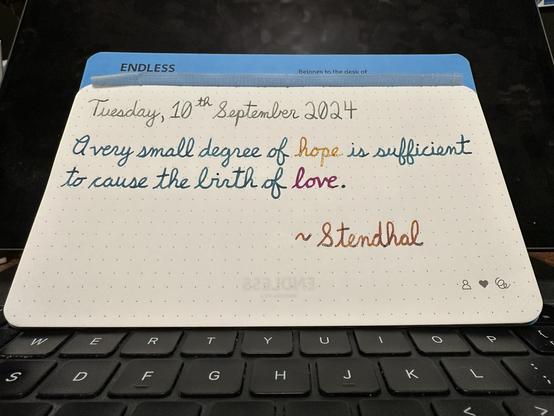 ENDLESS
Belongs to the desk of
Tuesday, 10th September 2024
A very small degree of hope is sufficient
to cause the birth of love.
~ Stendhal
ENDLESS
W E R T Y U I O P
S D F G H J K L